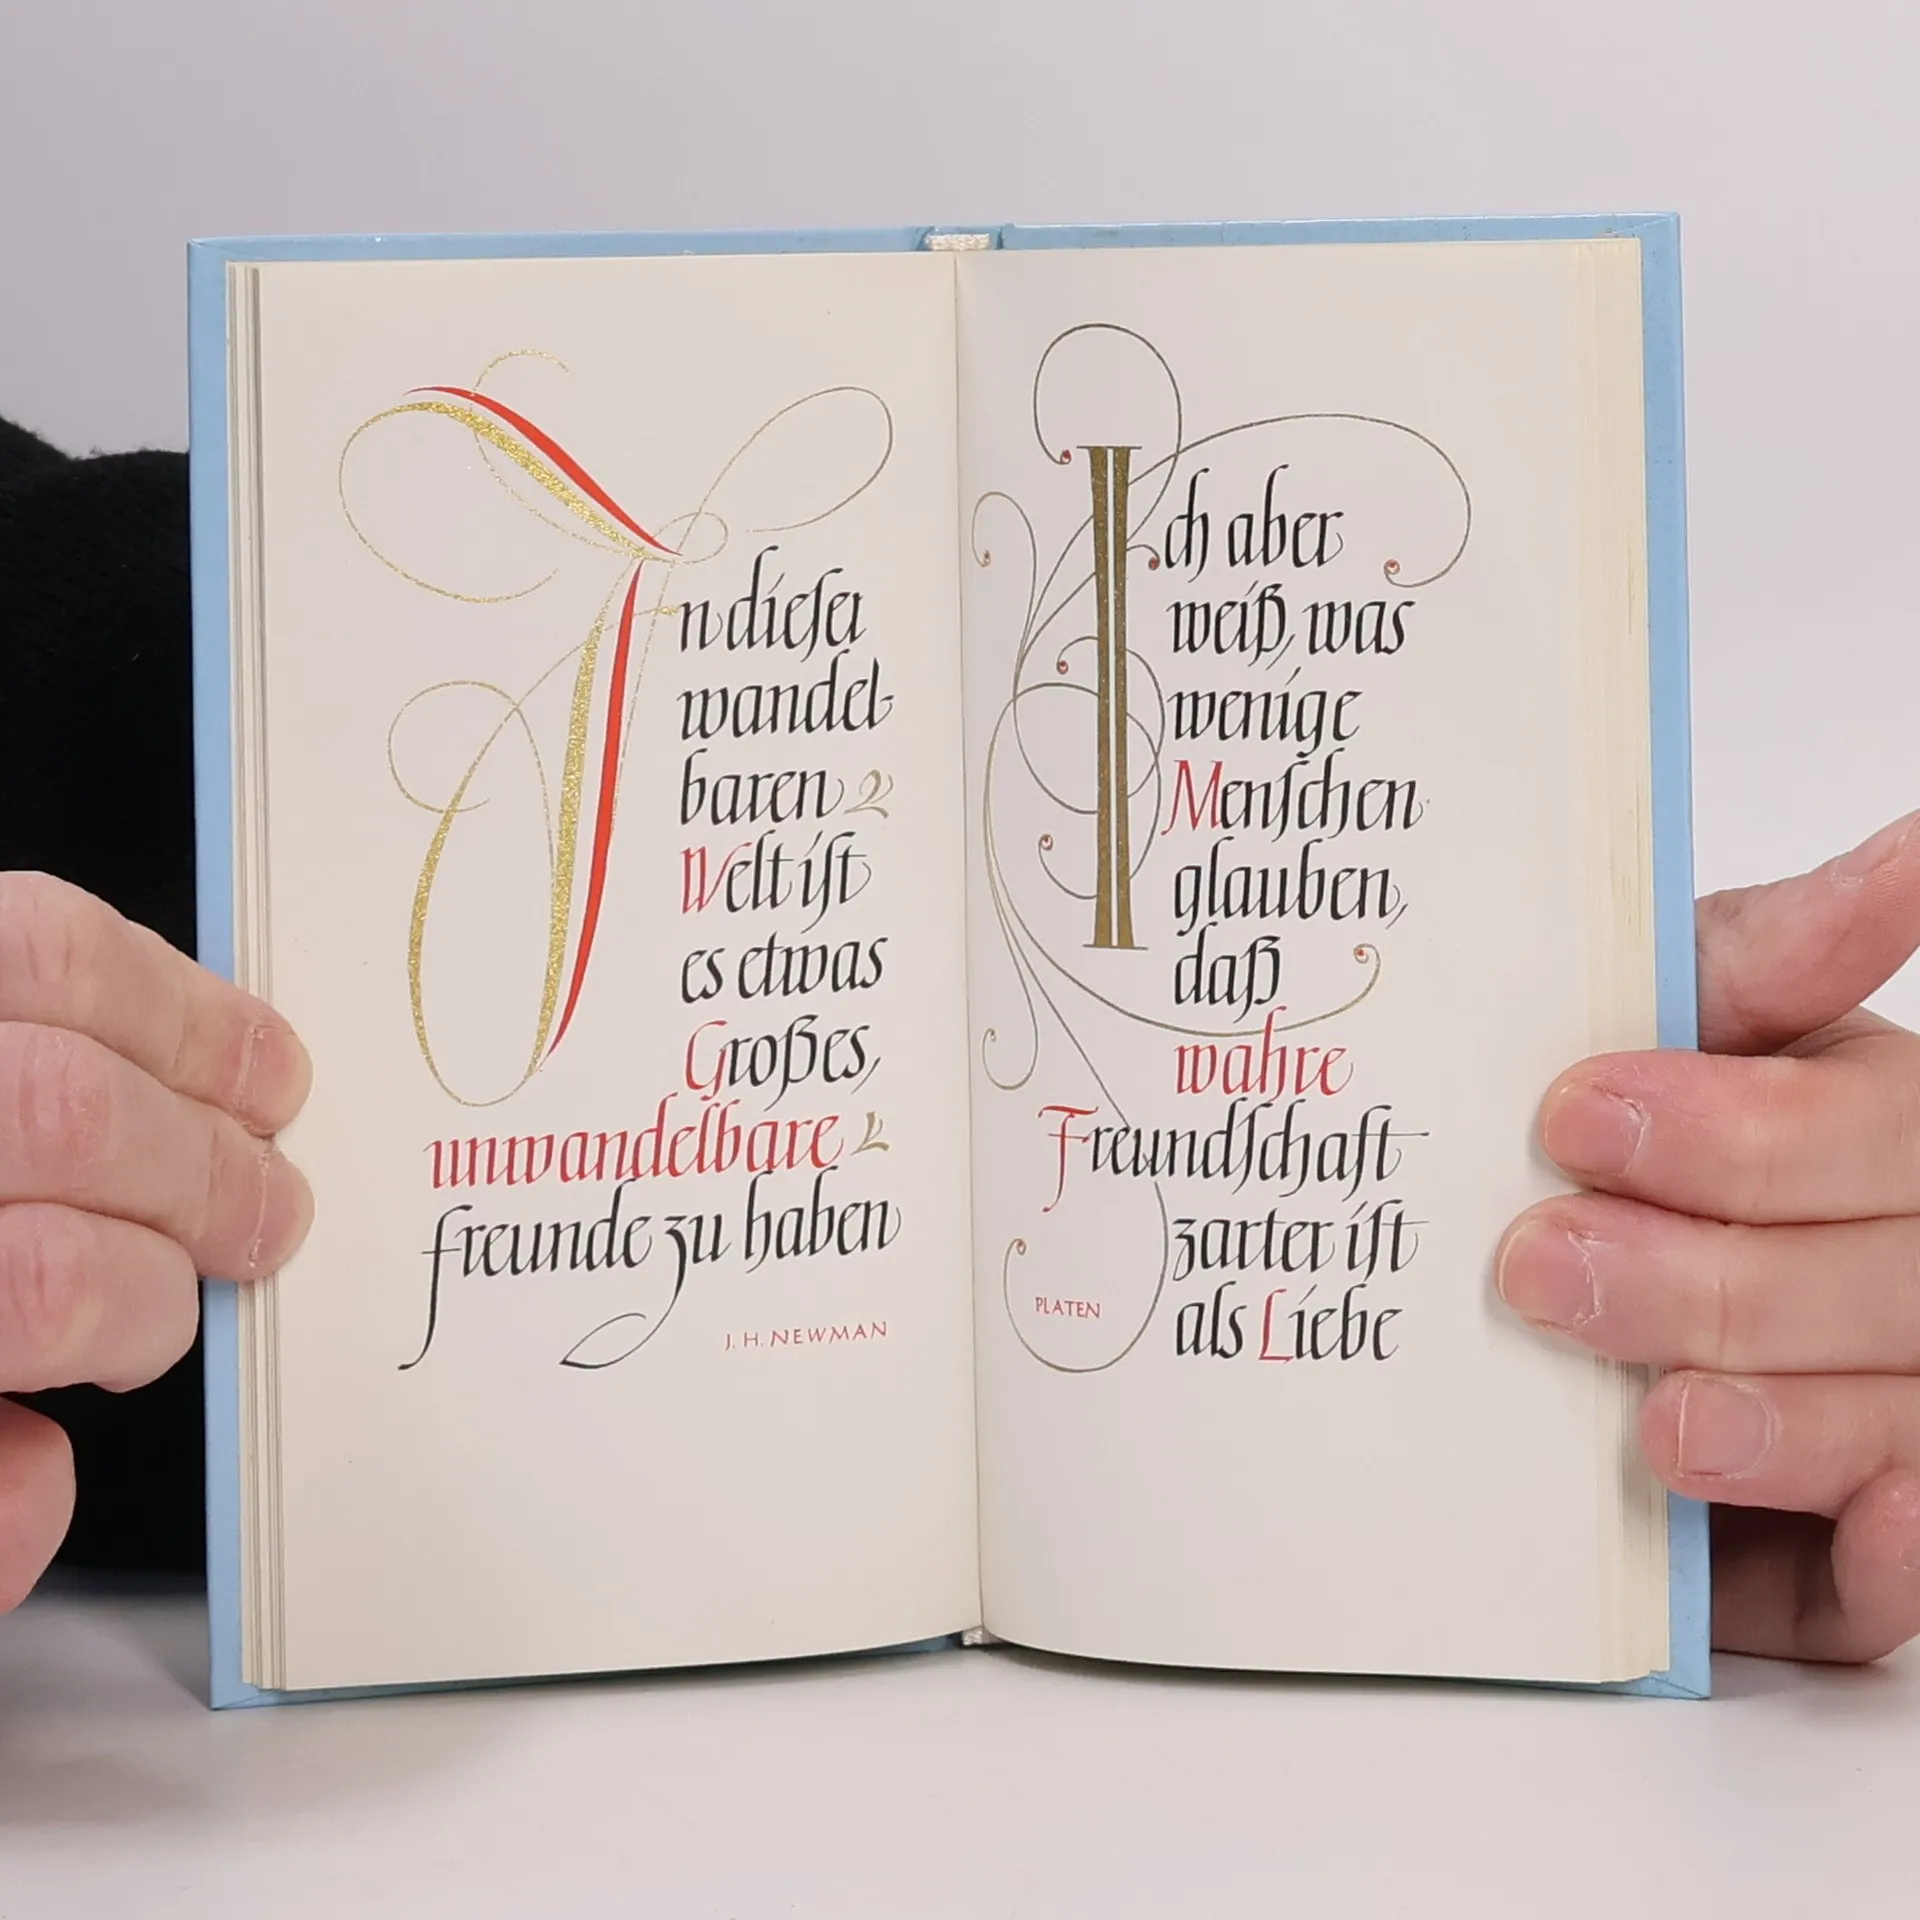 In dieser
wandel-
baren
Welt ist
es etwas
Großes,
unwandelbare
freunde zu haben
J. H. NEWMAN
Ich aber
weiß, was
wenige
Menschen
glauben,
daß
wahre
Freundschaft
zarter ist
als Liebe
PLATEN